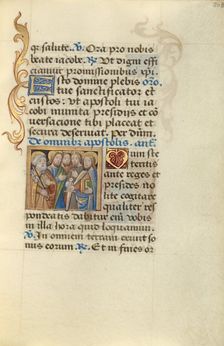 que salute. V. Ora pro nobis
beate iacobe. R. Ut digni effi
ciamur promissionibus xpi.
Esto domine plebis oro.
tue sanctificator et
custos: ut apostoli tui ia
cobi munita presidiis et co
versatione tibi placeat et
secura deserviat. Per dũm.
De omnibus apostolis. ant.
Dum ste
teritis
ante reges et
presides no
lite cogitare
qualiter res
pondeatis dabitur eim vobis
in illa hora quid loquamini.
V. In omnem terram exivit so
nus eorum R. Et in fines or